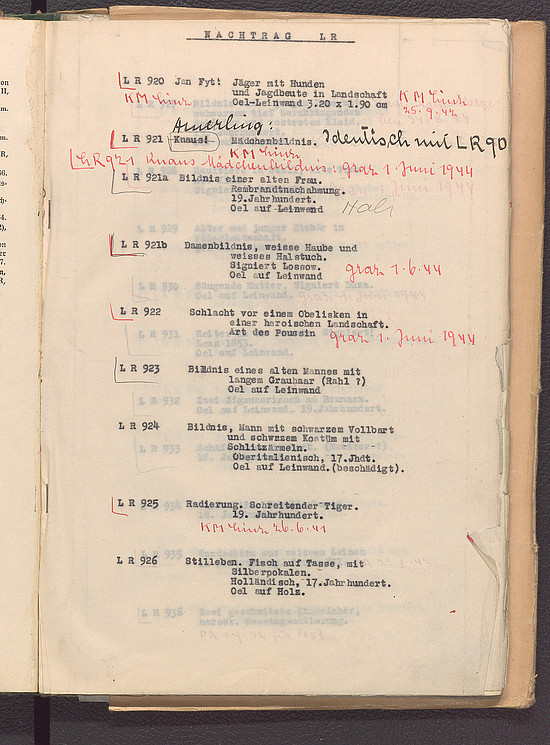 NACHTRAG LR
LR 920 Jan Fyt: Jäger mit Hunden
und Jagdbeute in Landschaft
Oel-Leinwand 3.20 x 1.90 cm
KM Linz
KM Linz
25.9.42
Amerling:
LR 921 Knaus: Mädchenbildnis. Identisch mit LR 90
KM Linz
LR 921 Knaus Mädchenbildnis: graz 1 Juni 1944
LR 921a Bildnis einer alten Frau.
Rembrandtnachahmung.
19.Jahrhundert.
Oel auf Leinwand
LR 921b Damenbildnis, weisse Haube und
weisses Halstuch.
Signiert Lossow.
Oel auf Leinwand graz 1.6.44
LR 922 Schlacht vor einem Obelisken in
einer heroischen Landschaft.
Art des Poussin graz 1. Juni 1944
LR 923 Bildnis eines alten Mannes mit
langem Grauhaar (Rahl ?)
Oel auf Leinwand
LR 924 Bildnis, Mann mit schwarzem Vollbart
und schwrzem Kostüm mit
Schlitzärmeln.
Oberitalienisch, 17.Jhdt.
Oel auf Leinwand.(beschädigt).
LR 925 Radierung. Schreitender Tiger.
19. Jahrhundert.
KM Linz 26.6.41
LR 926 Stilleben. Fisch auf Tasse, mit
Silberpokalen.
Holländisch, 17.Jahrhundert.
Oel auf Holz.